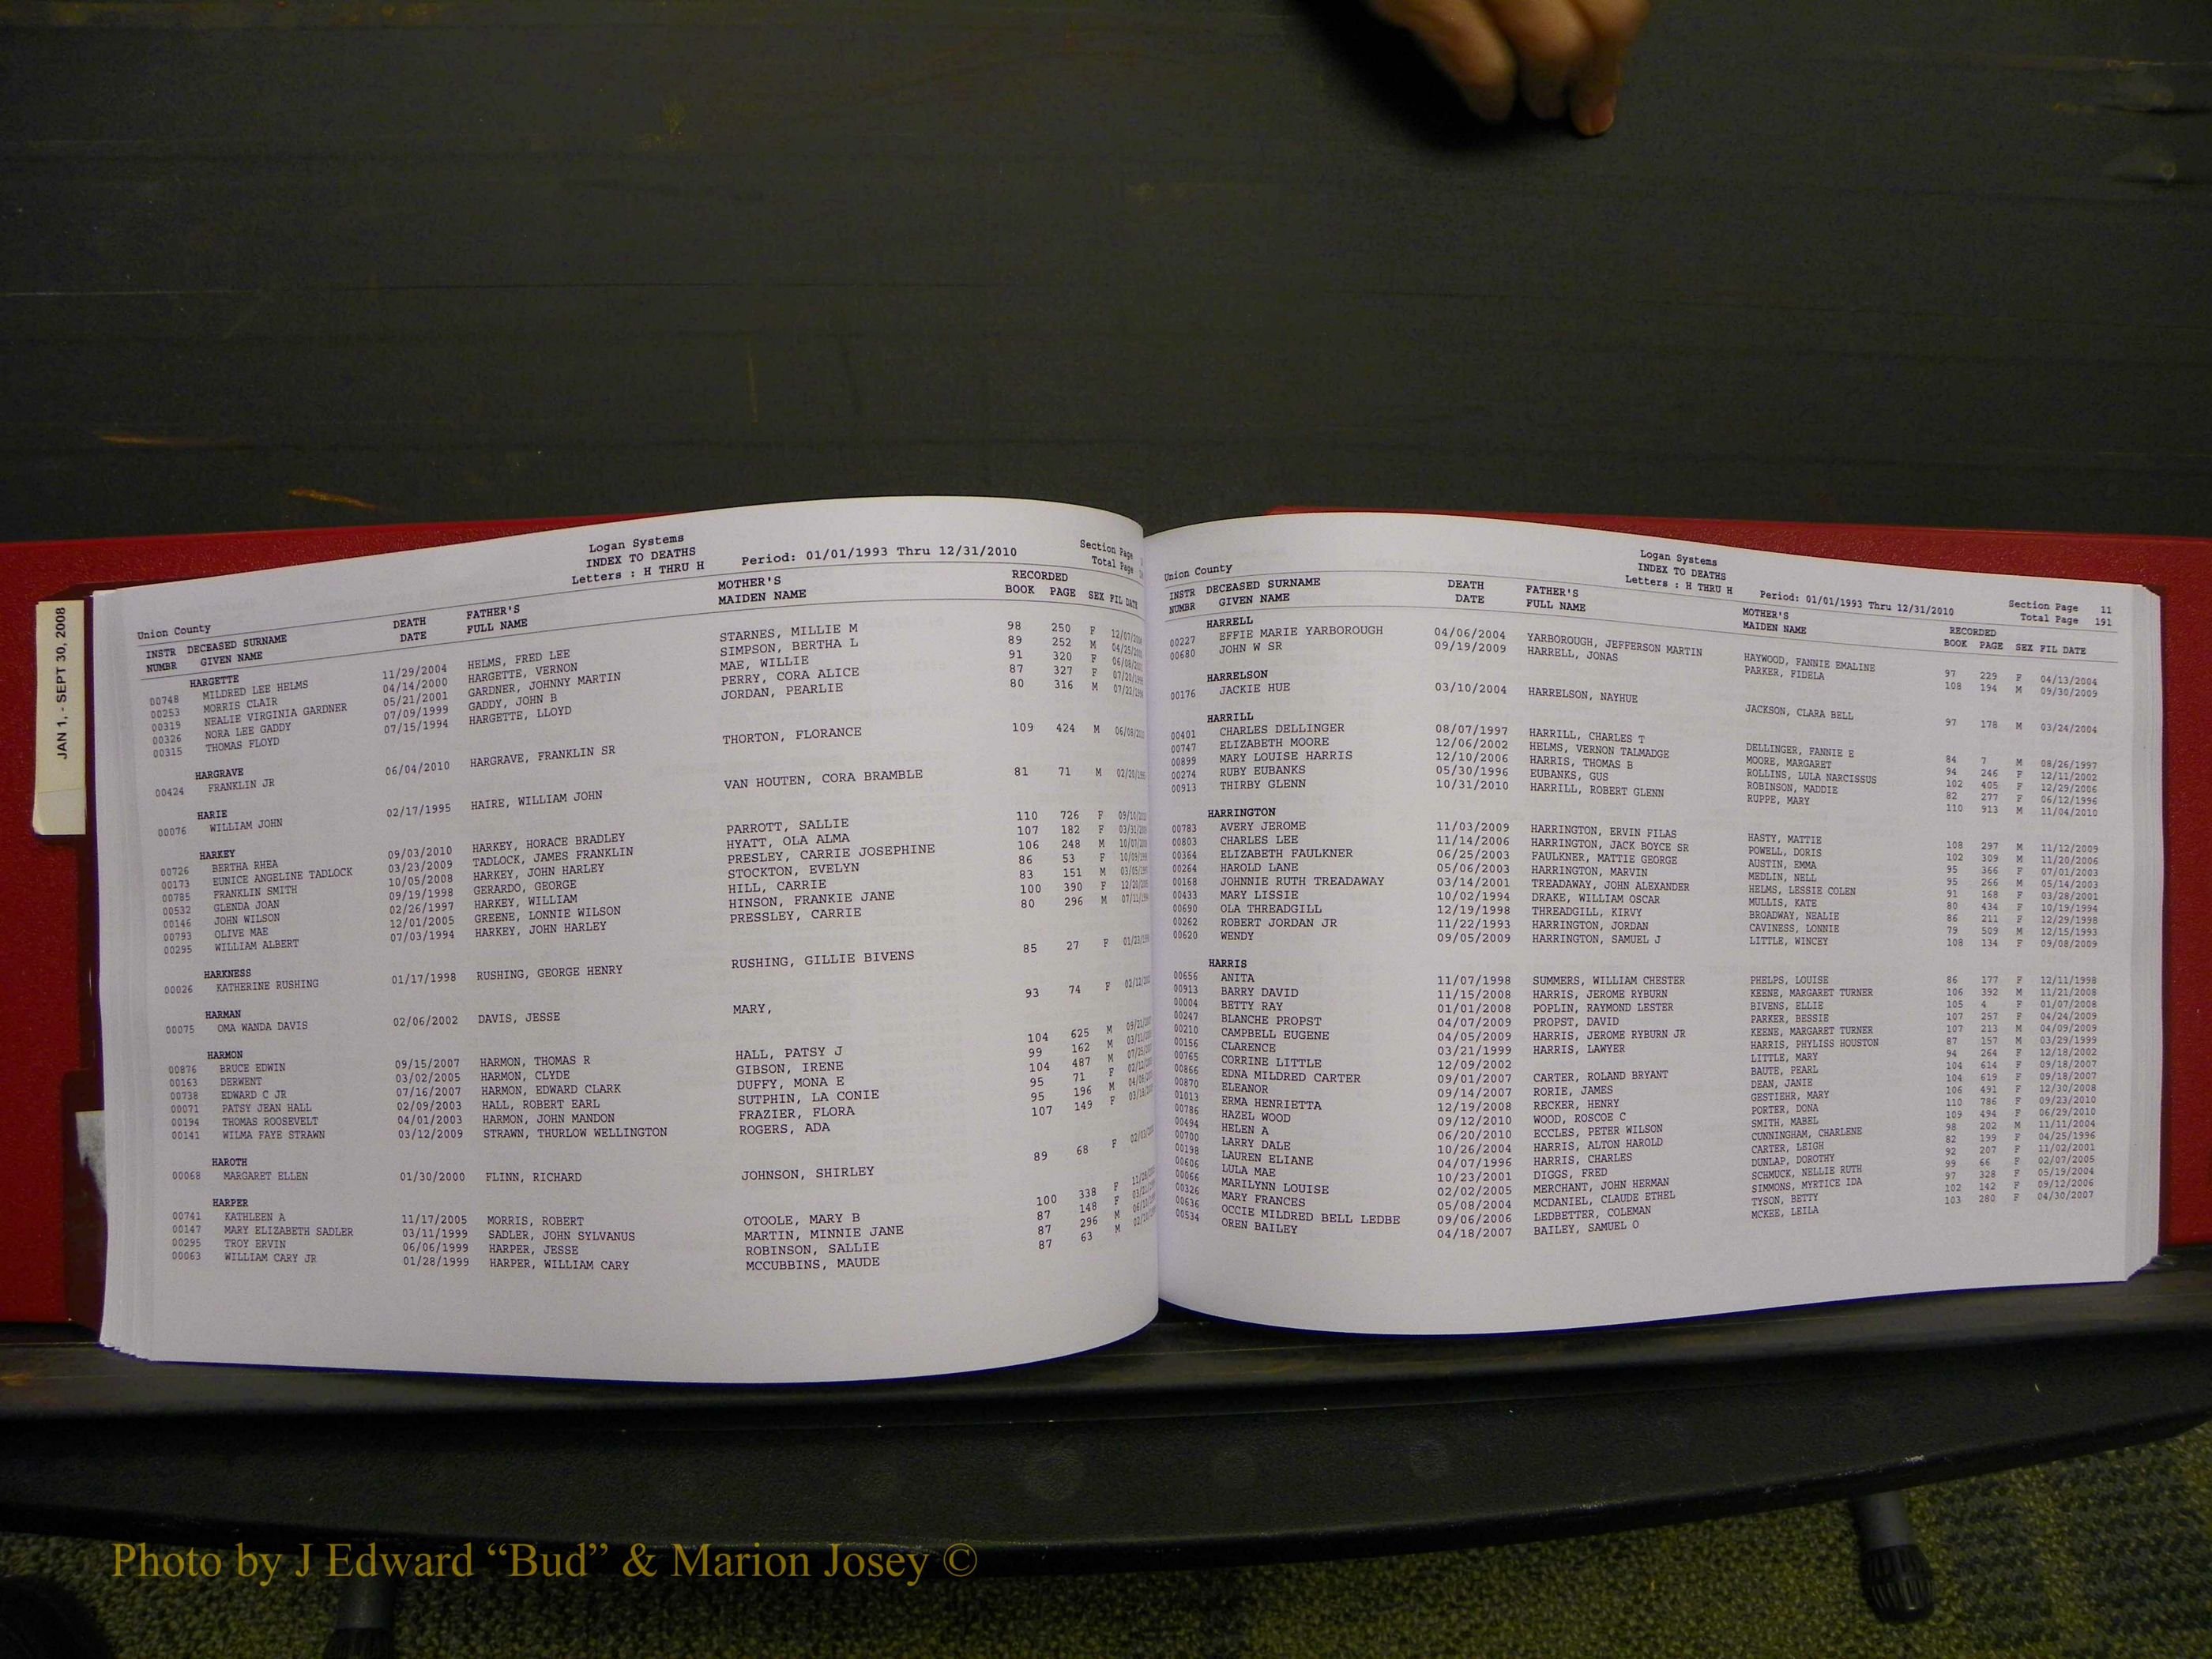 JAN 1, - SEPT 30, 2008
Union County
Logan Systems
INDEX TO DEATHS
Letters : H THRU H
Period: 01/01/1993 Thru 12/31/2010
Section Page
Total Page
INSTR DECEASED SURNAME DEATH FATHER'S MOTHER'S RECORDED
NUMBR GIVEN NAME DATE FULL NAME MAIDEN NAME BOOK PAGE SEX FIL DATE
HARGETTE
00748 MILDRED LEE HELMS 11/29/2004 HELMS, FRED LEE STARNES, MILLIE M 98 250 F
00253 MORRIS CLAIR 04/14/2000 HARGETTE, VERNON SIMPSON, BERTHA L 89 252 M
00319 NEALIE VIRGINIA GARDNER 05/21/2001 GARDNER, JOHNNY MARTIN MAE, WILLIE 91 320 F
00326 NORA LEE GADDY 07/09/1999 GADDY, JOHN B PERRY, CORA ALICE 87 327 F
00315 THOMAS FLOYD 07/15/1994 HARGETTE, LLOYD JORDAN, PEARLIE 80 316 M
HARGRAVE
00424 FRANKLIN JR 06/04/2010 HARGRAVE, FRANKLIN SR THORTON, FLORANCE 109 424 M
HARIE
00076 WILLIAM JOHN 02/17/1995 HAIRE, WILLIAM JOHN VAN HOUTEN, CORA BRAMBLE 81 71 M
HARKEY
00726 BERTHA RHEA 09/03/2010 HARKEY, HORACE BRADLEY PARROTT, SALLIE 110 726 F
00173 EUNICE ANGELINE TADLOCK 03/23/2009 TADLOCK, JAMES FRANKLIN HYATT, OLA ALMA 107 182 F
00785 FRANKLIN SMITH 10/05/2008 HARKEY, JOHN HARLEY PRESLEY, CARRIE JOSEPHINE 106 248 M
00532 GLENDA JOAN 09/19/1998 GERARDO, GEORGE STOCKTON, EVELYN 86 53 F
00146 JOHN WILSON 02/26/1997 HARKEY, WILLIAM HILL, CARRIE 83 151 M
00793 OLIVE MAE 12/01/2005 GREENE, LONNIE WILSON HINSON, FRANKIE JANE 100 390 F
00295 WILLIAM ALBERT 07/03/1994 HARKEY, JOHN HARLEY PRESSLEY, CARRIE 80 296 M
HARKNESS
00026 KATHERINE RUSHING 01/17/1998 RUSHING, GEORGE HENRY RUSHING, GILLIE BIVENS 85 27 F
HARMAN
00075 OMA WANDA DAVIS 02/06/2002 DAVIS, JESSE MARY, 93 74 F
HARMON
00876 BRUCE EDWIN 09/15/2007 HARMON, THOMAS R HALL, PATSY J 104 625 M
00163 DERWENT 03/02/2005 HARMON, CLYDE GIBSON, IRENE 99 162 M
00738 EDWARD C JR 07/16/2007 HARMON, EDWARD CLARK DUFFY, MONA E 104 487 M
00071 PATSY JEAN HALL 02/09/2003 HALL, ROBERT EARL SUTPHIN, LA CONIE 95 71 F
00194 THOMAS ROOSEVELT 04/01/2003 HARMON, JOHN MANDON FRAZIER, FLORA 95 196 M
00141 WILMA FAYE STRAWN 03/12/2009 STRAWN, THURLOW WELLINGTON ROGERS, ADA 107 149 F
HAROTH
00068 MARGARET ELLEN 01/30/2000 FLINN, RICHARD JOHNSON, SHIRLEY 89 68 F
HARPER
00741 KATHLEEN A 11/17/2005 MORRIS, ROBERT OTOOLE, MARY B 100 338 F
00147 MARY ELIZABETH SADLER 03/11/1999 SADLER, JOHN SYLVANUS MARTIN, MINNIE JANE 87 148 F
00295 TROY ERVIN 06/06/1999 HARPER, JESSE ROBINSON, SALLIE 87 296 M
00063 WILLIAM CARY JR 01/28/1999 HARPER, WILLIAM CARY MCCUBBINS, MAUDE 87 63 M
Union County
Logan Systems
INDEX TO DEATHS
Letters : H THRU H
Period: 01/01/1993 Thru 12/31/2010
Section Page 11
Total Page 191
INSTR DECEASED SURNAME DEATH FATHER'S MOTHER'S RECORDED
NUMBR GIVEN NAME DATE FULL NAME MAIDEN NAME BOOK PAGE SEX FIL DATE
HARRELL
00227 EFFIE MARIE YARBOROUGH 04/06/2004 YARBOROUGH, JEFFERSON MARTIN HAYWOOD, FANNIE EMALINE 97 229 F 04/13/2004
00680 JOHN W SR 09/19/2009 HARRELL, JONAS PARKER, FIDELA 108 194 M 09/30/2009
HARRELSON
00176 JACKIE HUE 03/10/2004 HARRELSON, NAYHUE JACKSON, CLARA BELL 97 178 M 03/24/2004
HARRILL
00401 CHARLES DELLINGER 08/07/1997 HARRILL, CHARLES T DELLINGER, FANNIE E 84 7 M 08/26/1997
00747 ELIZABETH MOORE 12/06/2002 HELMS, VERNON TALMADGE MOORE, MARGARET 94 246 F 12/11/2002
00899 MARY LOUISE HARRIS 12/10/2006 HARRIS, THOMAS B ROLLINS, LULA NARCISSUS 102 405 F 12/29/2006
00274 RUBY EUBANKS 05/30/1996 EUBANKS, GUS ROBINSON, MADDIE 82 277 F 06/12/1996
00913 THIRBY GLENN 10/31/2010 HARRILL, ROBERT GLENN RUPPE, MARY 110 913 M 11/04/2010
HARRINGTON
00783 AVERY JEROME 11/03/2009 HARRINGTON, ERVIN FILAS HASTY, MATTIE 108 297 M 11/12/2009
00803 CHARLES LEE 11/14/2006 HARRINGTON, JACK BOYCE SR POWELL, DORIS 102 309 M 11/20/2006
00364 ELIZABETH FAULKNER 06/25/2003 FAULKNER, MATTIE GEORGE AUSTIN, EMMA 95 366 F 07/01/2003
00264 HAROLD LANE 05/06/2003 HARRINGTON, MARVIN MEDLIN, NELL 95 266 M 05/14/2003
00168 JOHNNIE RUTH TREADAWAY 03/14/2001 TREADAWAY, JOHN ALEXANDER HELMS, LESSIE COLEN 91 168 F 03/28/2001
00433 MARY LISSIE 10/02/1994 DRAKE, WILLIAM OSCAR MULLIS, KATE 80 434 F 10/19/1994
00690 OLA THREADGILL 12/19/1998 THREADGILL, KIRVY BROADWAY, NEALIE 86 211 F 12/29/1998
00262 ROBERT JORDAN JR 11/22/1993 HARRINGTON, JORDAN CAVINESS, LONNIE 79 509 M 12/15/1993
00620 WENDY 09/05/2009 HARRINGTON, SAMUEL J LITTLE, WINCEY 108 134 F 09/08/2009
HARRIS
00656 ANITA 11/07/1998 SUMMERS, WILLIAM CHESTER PHELPS, LOUISE 86 177 F 12/11/1998
00913 BARRY DAVID 11/15/2008 HARRIS, JEROME RYBURN KEENE, MARGARET TURNER 106 392 M 11/21/2008
00004 BETTY RAY 01/01/2008 POPLIN, RAYMOND LESTER BIVENS, ELLIE 105 4 F 01/07/2008
00247 BLANCHE PROPST 04/07/2009 PROPST, DAVID PARKER, BESSIE 107 257 F 04/24/2009
00210 CAMPBELL EUGENE 04/05/2009 HARRIS, JEROME RYBURN JR KEENE, MARGARET TURNER 107 213 M 04/09/2009
00156 CLARENCE 03/21/1999 HARRIS, LAWYER HARRIS, PHYLISS HOUSTON 87 157 M 03/29/1999
00765 CORRINE LITTLE 12/09/2002 LITTLE, MARY 94 264 F 12/18/2002
00866 EDNA MILDRED CARTER 09/01/2007 CARTER, ROLAND BRYANT BAUTE, PEARL 104 614 F 09/18/2007
00870 ELEANOR 09/14/2007 RORIE, JAMES DEAN, JANIE 104 619 F 09/18/2007
01013 ERMA HENRIETTA 12/19/2008 RECKER, HENRY GESTIEHR, MARY 106 491 F 12/30/2008
00786 HAZEL WOOD 09/12/2010 WOOD, ROSCOE C PORTER, DONA 110 786 F 09/23/2010
00494 HELEN A 06/20/2010 ECCLES, PETER WILSON SMITH, MABEL 109 494 F 06/29/2010
00700 LARRY DALE 10/26/2004 HARRIS, ALTON HAROLD CUNNINGHAM, CHARLENE 98 202 M 11/11/2004
00198 LAUREN ELIANE 04/07/1996 HARRIS, CHARLES CARTER, LEIGH 82 199 F 04/25/1996
00606 LULA MAE 10/23/2001 DIGGS, FRED DUNLAP, DOROTHY 92 207 F 11/02/2001
00066 MARILYNN LOUISE 02/02/2005 MERCHANT, JOHN HERMAN SCHMUCK, NELLIE RUTH 99 66 F 02/07/2005
00326 MARY FRANCES 05/08/2004 MCDANIEL, CLAUDE ETHEL SIMMONS, MYRTICE IDA 97 328 F 05/19/2004
00636 OCCIE MILDRED BELL LEDBE 09/06/2006 LEDBETTER, COLEMAN TYSON, BETTY 102 142 F 09/12/2006
00534 OREN BAILEY 04/18/2007 BAILEY, SAMUEL O MCKEE, LEILA 103 280 F 04/30/2007
Photo by J Edward “Bud” & Marion Josey ©